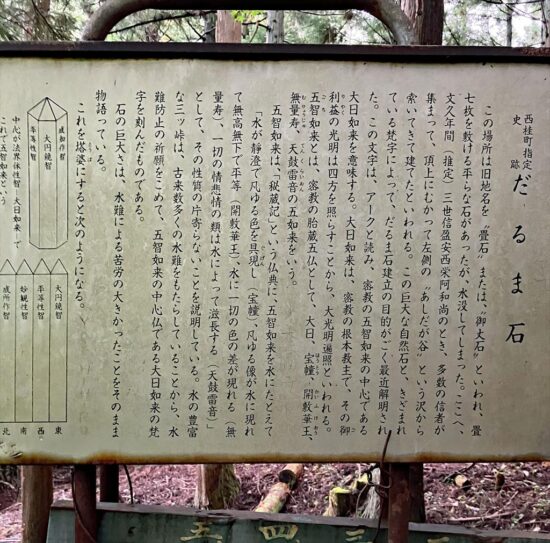 西桂町指定
史跡
だるま石
この場所は旧地名を〝畳石〟または、〝御大石〟といわれ、畳
七枚を敷ける平らな石があったが、水没してしまった。ここへ、
文久年間(推定)三世信盛安西栄阿和尚のとき、多数の信者が
集まって、頂上にむかって左側の〝あしだが谷〟という沢から
索いてきて建てたといわれる。この巨大な自然石と、きざまれ
ている梵字によって、だるま石建立の目的がごく最近解明され
た。この文字は、アークと読み、密教の五智如来の中心である
大日如来を意味する。大日如来は、密教の根本教主で、その御
利益の光明は四方を照らすことから、大光明遍照といわれる。
五智如来とは、密教の胎蔵五仏として、大日、宝幢、開敷華王、
無量寿、天鼓雷音の五如来をいう。
五智如来は「秘蔵記」という仏典に、五智如来を水にたとえて
「水が静澄で凡ゆる色を具現し(宝幢)、凡ゆる像が水に現れ
て無高無下で平等(開敷華王)水に一切の色の差が現れる(無
量寿)、一切の情悲情の類は水によって滋長する(天鼓雷音)」
として、その性質の片寄らないことを説明している。水の豊富
な三ッ峠は、古来数多くの水難をもたらしていることから、水
難防止の祈願をこめて、五智如来の中心仏である大日如来の梵
字を刻んだものである。
石の巨大さは、水難による苦労の大きかったことをそのまま
物語っている。
これを塔婆にすると次のようになる。
成所作智
大円鏡智
平等性智
中心が法界体性智=大日如来で
これで五智如来という
大円鏡智
平等性智
妙観性智
成所作智
東
西
南
北
三
四
五